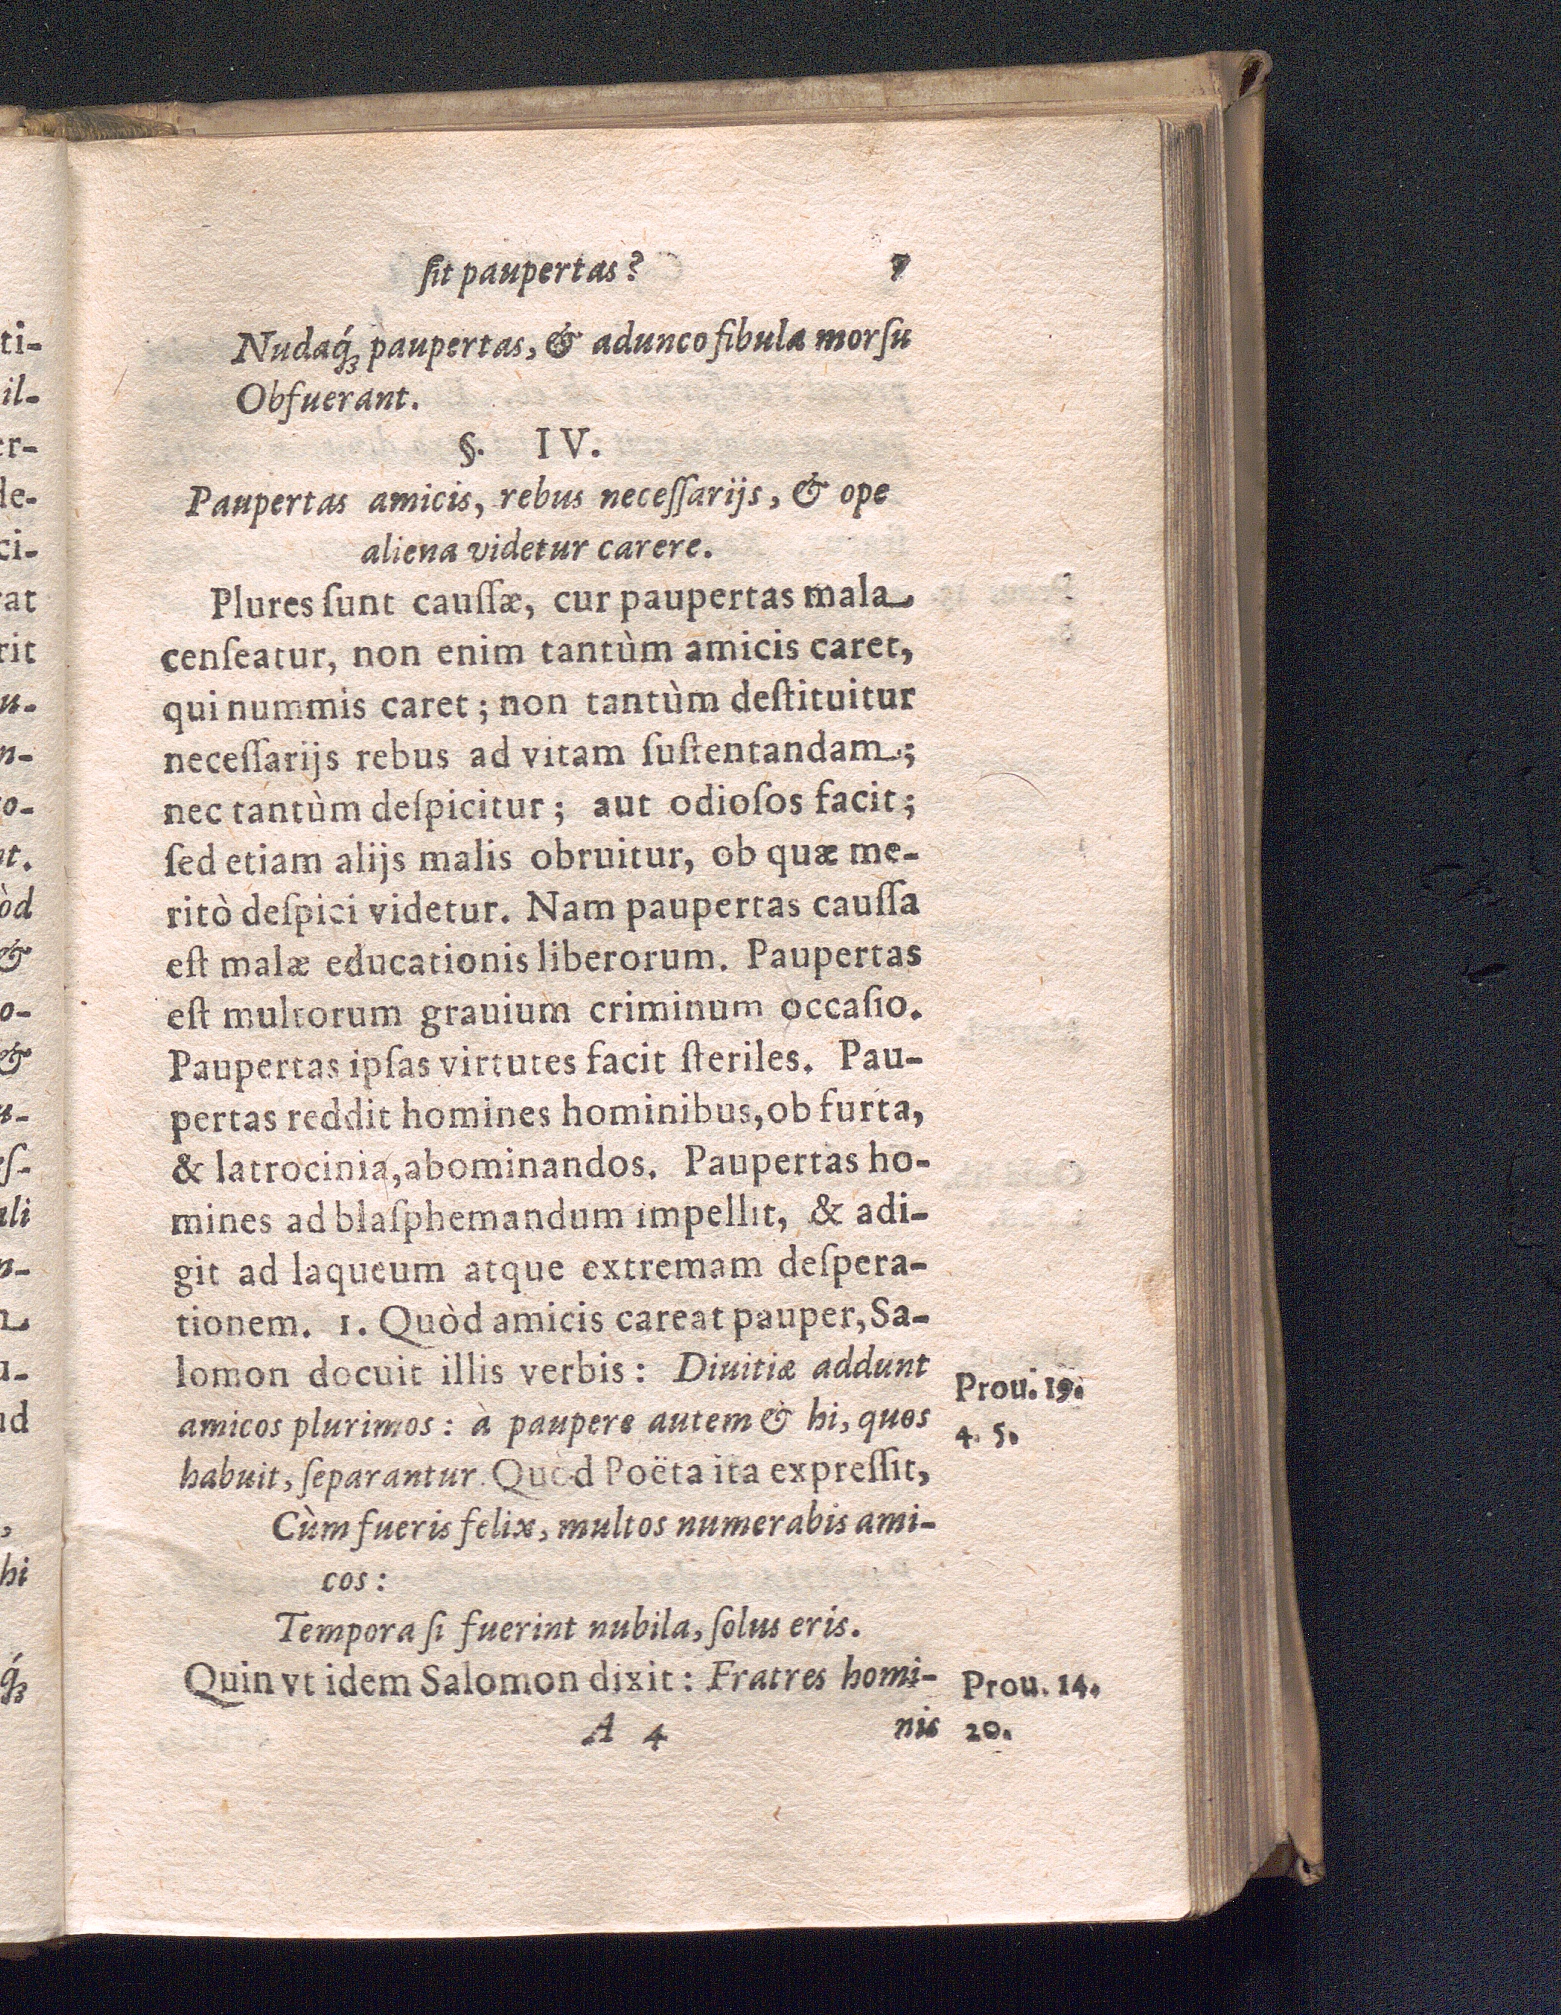 ſit paupertas? 7
Nudaq́ꝫ paupertas, & adunco fibula morſu
Obfuerant.
§. IV.
Paupertas amicis, rebus neceſſarijs, & ope
aliena videtur carere.
Plures ſunt cauſſæ, cur paupertas mala
cenſeatur, non enim tantùm amicis caret,
qui nummis caret; non tantùm deſtituitur
neceſſarijs rebus ad vitam ſuſtentandam;
nec tantùm deſpicitur; aut odioſos facit;
ſed etiam alijs malis obruitur, ob quæ me-
ritò deſpici videtur. Nam paupertas cauſſa
eſt malæ educationis liberorum. Paupertas
eſt multorum grauium criminum occaſio.
Paupertas ipſas virtutes facit ſteriles. Pau-
pertas reddit homines hominibus, ob furta,
& latrocinia, abominandos. Paupertas ho-
mines ad blaſphemandum impellit, & adi-
git ad laqueum atque extremam deſpera-
tionem. 1. Quòd amicis careat pauper, Sa-
lomon docuit illis verbis: Diuitiæ addunt
amicos plurimos: à paupere autem & hi, quos
habuit, ſeparantur. Quòd Poëta ita expreſſit,
Cùm fueris felix, multos numerabis ami-
cos:
Tempora ſi fuerint nubila, ſolus eris.
Quin vt idem Salomon dixit: Fratres homi-
A 4 nis
Prou. 19.
4. 5.
Prou. 14.
20.
ti-
il-
er-
de-
ci-
rat
rit
u-
n-
to-
nt.
òd
&
o-
&
u-
eſ-
ali
n-
u-
ud
,
hi
q́ꝫ